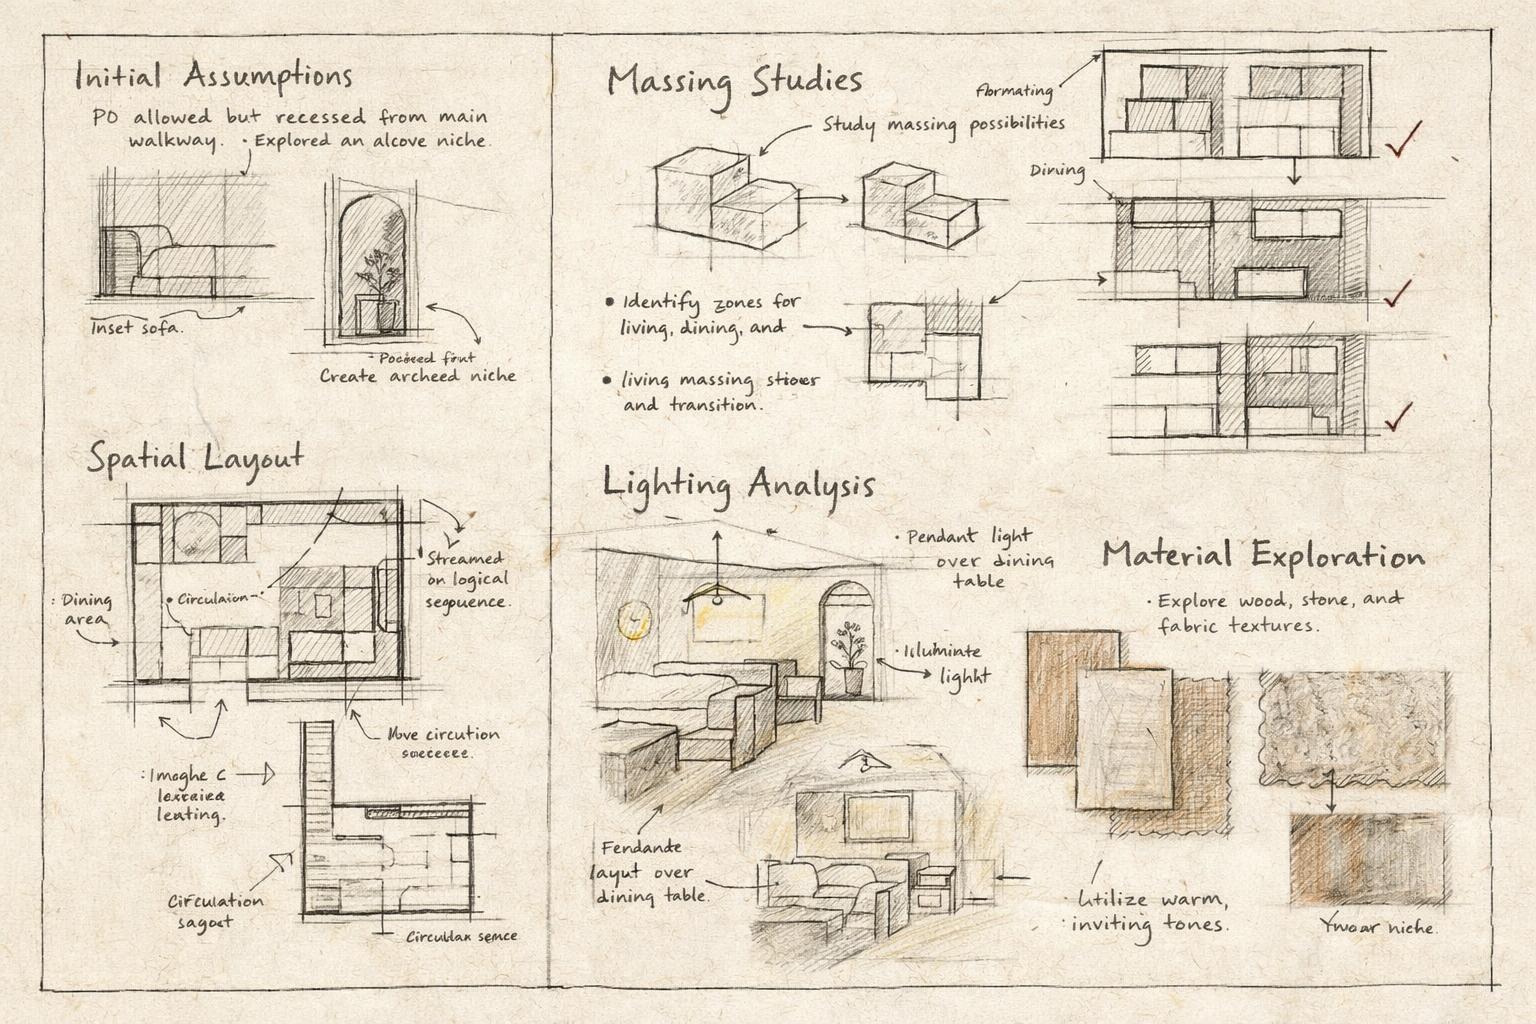 Initial Assumptions
PO allowed but recessed from main
walkway. · Explored an alcove niche.
Inset sofa.
Create archeed niche
Spatial Layout
· Dining
area
· Circulaion
Streamed
on logical
segpuence.
Move circution
: Imaghe C
leating.
Circulation
sagost
Circuldax semce
Massing Studies
Study massing possibilities
Formating
Dining
• Identify zones for
living, dining, and
• living massing
and transition.
Lighting Analysis
· Pendant light
over dining
table
· Illuminate
lighht
Fendande
layut over
dining table.
Material Exploration
· Explore wood, stone, and
fabric textures.
· Utilize warm,
· inviting tones.
niche.